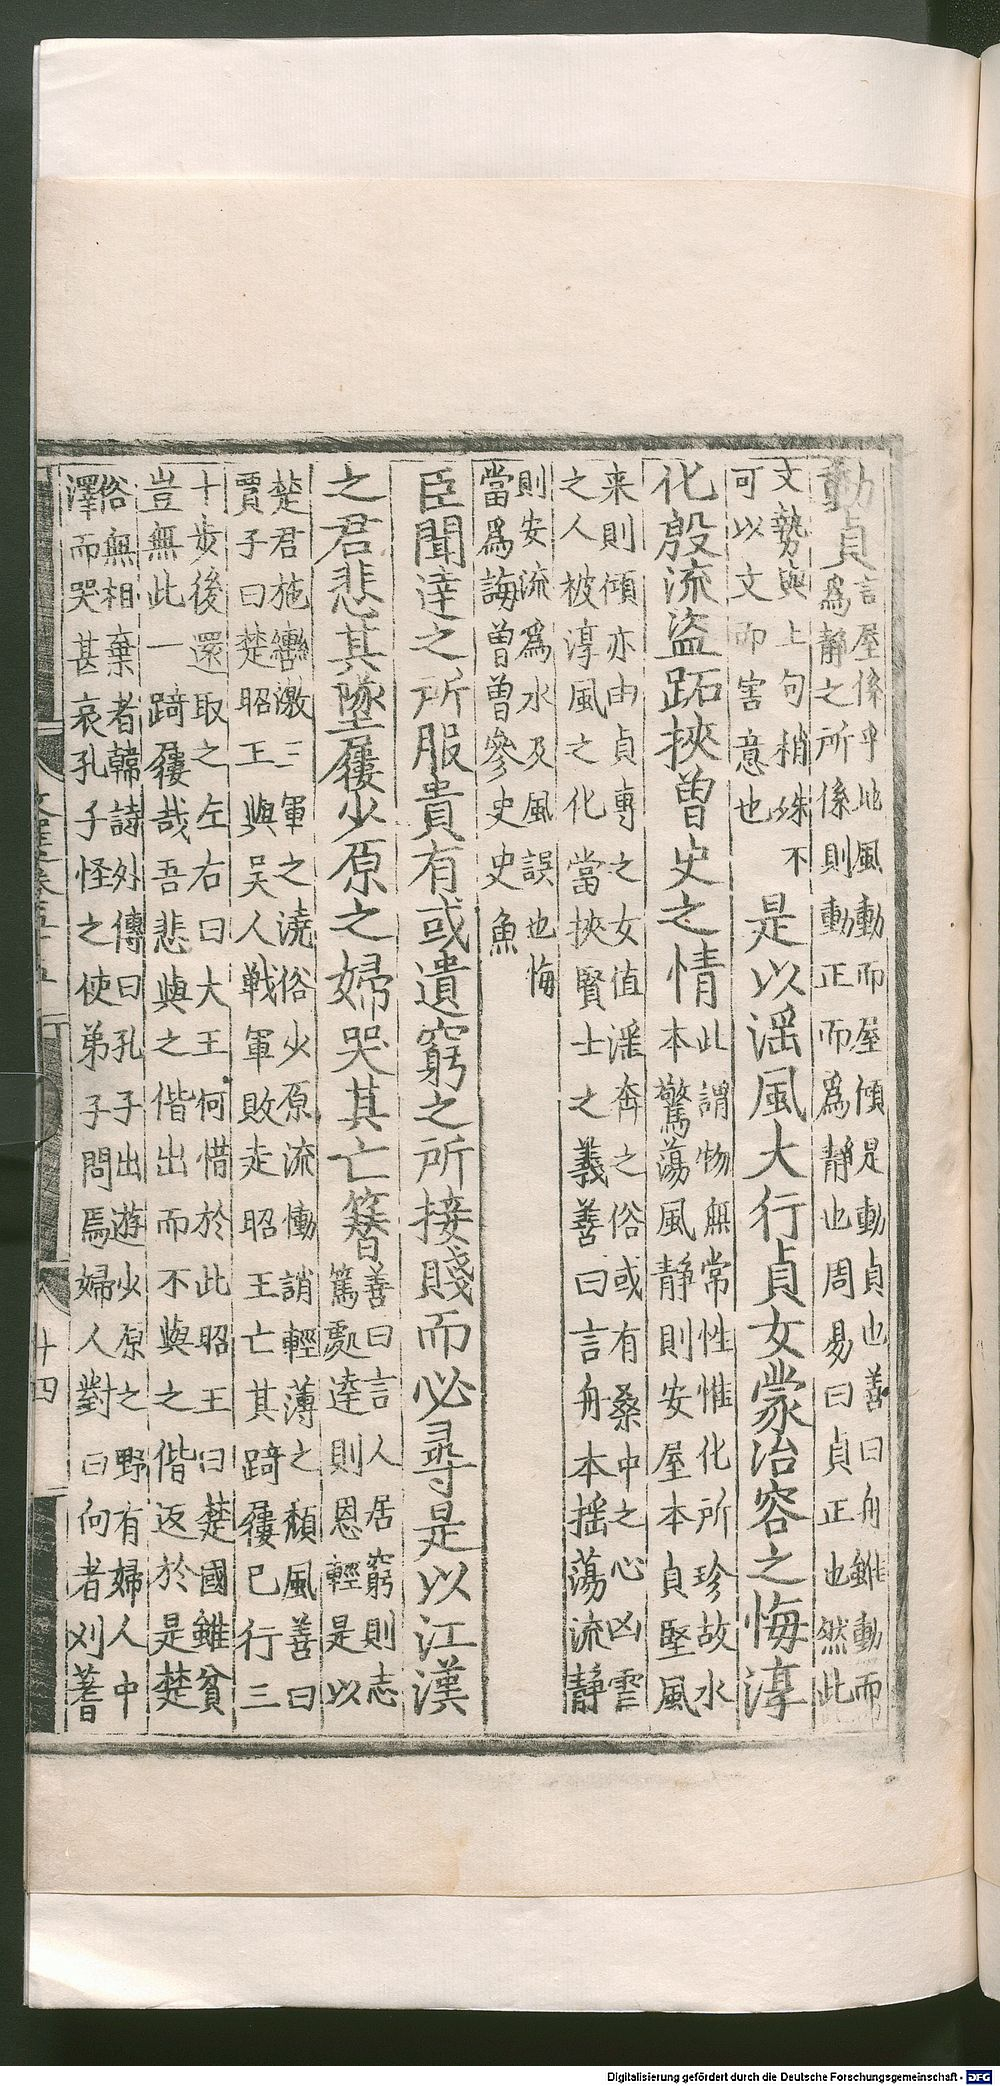 動貞言屋係乎地風動而屋傾是動貞也善曰舟雖動而
爲靜之所係則動正而爲靜也周易曰貞正也然此
文勢與上句稍殊不
可以文而害意也
是以滛風大行貞女蒙冶容之悔淳
化殷流盜跖挾曾史之情
此謂物無常性惟化所珍故水
本驚蕩風靜則安屋本貞堅風
来則傾亦由貞專之女值滛奔之俗或有桑中之心凶雲
之人被淳風之化當挾賢士之義善曰言舟本摇蕩流靜
則安流爲水及風誤也悔
當爲誨曾曾參史史魚
臣聞達之所服貴有或遺窮之所接賤而必尋是以江漢
之君悲其墜屨少原之婦哭其亡簪
善曰言人居窮則志
篤處逹則恩輕是以
楚君施轡激三軍之澆俗少原流慟誚輕薄之頹風善曰
賈子曰楚昭王與吴人戰軍敗走昭王亡其踦屨已行三
十步後還取之左右曰大王何惜於此昭王曰楚國雖貧
豈無此一踦屨哉吾悲與之偕出而不與之偕返於是楚
俗無相棄者韓詩外傳曰孔子出遊少原之野有婦人中
澤而哭甚哀孔子怪之使弟子問焉婦人對曰向者刈蓍
十四
Digitalisierung gefördert durch die Deutsche Forschungsgemeinschaft - DFG